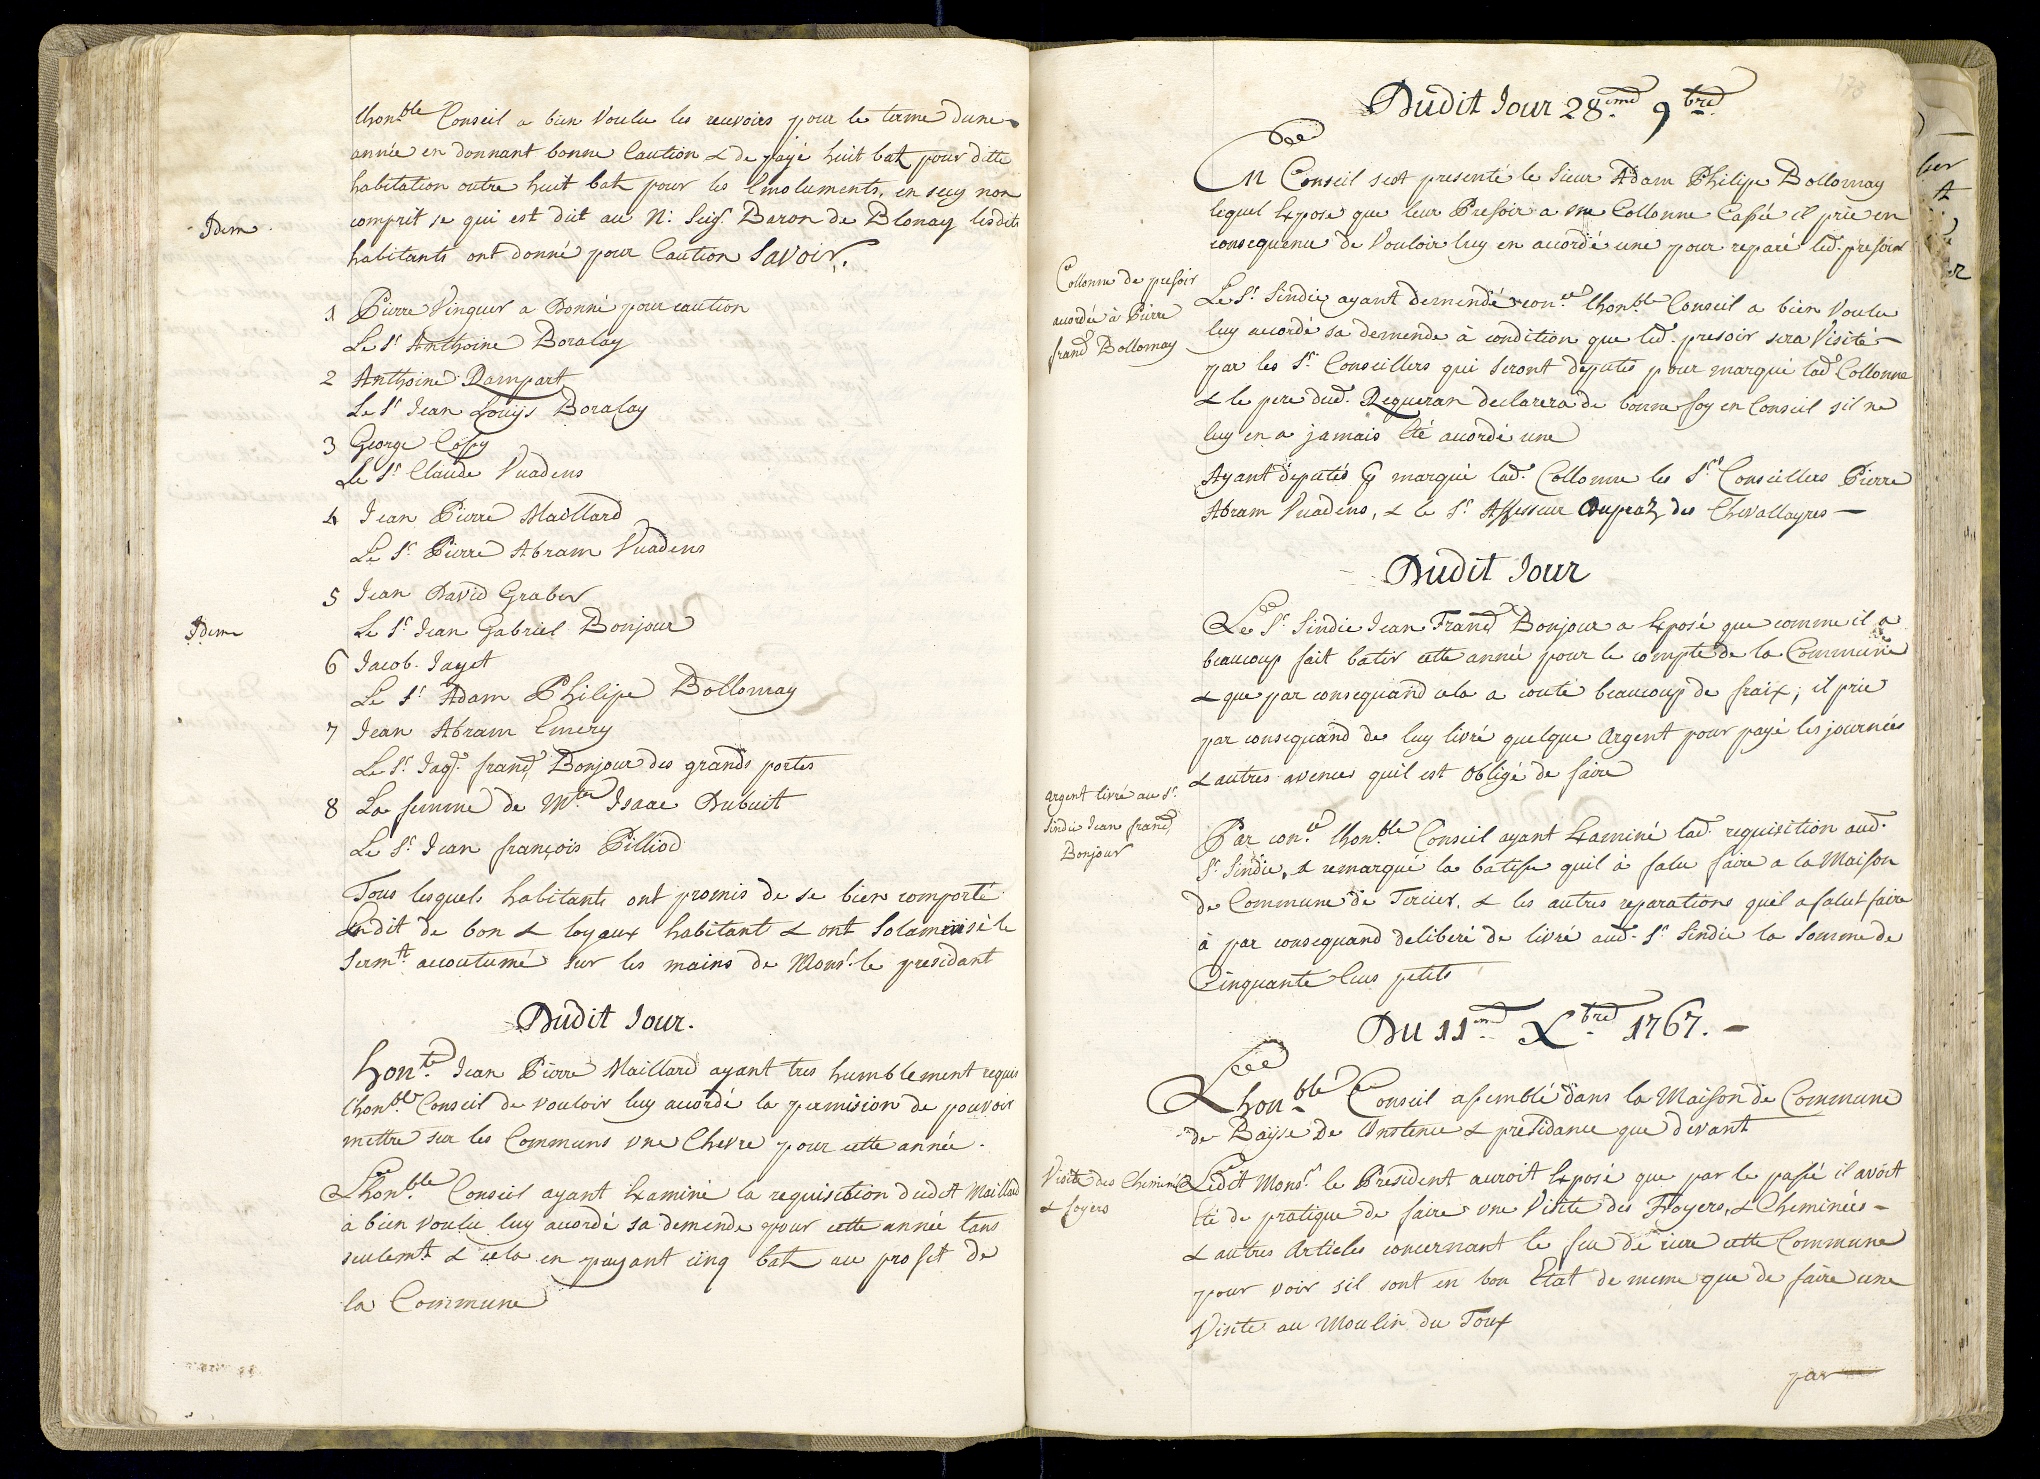 lhon.ble Conseil a bien voulu les recevoirs pour le terme dune
année en donnant bonne Caution & de payé huit batz pour ditte
habitation outre huit batz pour les Emoluments, en secy non
comprit se qui est dût au N: Seig.r Baron de Blonay lesdits
Idem
habitants ont donné pour Caution Savoir,
1 Pierre Vinguer a Donné pour caution
Le S.r Anthoine Boralay
2 Anthoine Rampart
Le S.r Jean Louys Boralay
3 George Cossy
Le S.r Claude Vuadens
4 Jean Pierre Maillard
Le S.r Pierre Abram Vuadens
5 Jean David Graber
Idem
Le S.r Jean Gabriel Bonjour
6 Jacob Jayet
Le S.r Adam Philipe Bollomay
7 Jean Abram Emery
Le S.r Jaq.s franç.s Bonjour des grands portes
8 La femme de M.tre Isaac Dubuit
Le S.r Jean françois Pilliod
Tous lesquels habitants ont promis de se bien comporté
Endit de bon & loyaux habitant & ont Solamnisé le
Serm.t accoutumé sur les mains de Mons.r le presidant
Dudit Jour.
hon.te Jean Pierre Maillard ayant tres humblement requis
lhon.ble Conseil de vouloir luy acordé la permision de pouvoir
mettre sur les Communs vne Chevre pour cette année.
Lhon.ble Conseil ayant Examiné la requisition dudit Maillard
a bien voulu luy acordé sa demende pour cette année tans
seulem.t & cela en payant cinq batz au profit de
la Commune
173
Dudit Jour 28.eme 9.bre
En Conseil sest presenté le Sieur Adam Philipe Bollomay
lequel Expose que leur Presoir a vne Collonne Cassée il prie en
consequence de Vouloir luy en acordé une pour reparé led. presoir
Collonne de presoir
acordée à Pierre
franç.s Bollomay
Le S.r Sindic ayant demendé con.ce lhon.ble Conseil a bien Voulu
luy acordé sa demende à condition que led. presoir sera Visité
par les S.rs Conseillers qui seront députés pour marqué lad.e Collonne
& le pere dud. Requeran declarera de bonne foy en Conseil sil ne
luy en a jamais Eté acordé une
Ayant députés p marqué lad.e Collonne les S.rs Conseillers Pierre
Abram Vuadens, & le S.r Assesseur Dupraz des Chevallayres
Dudit Jour
Le S.r Sindic Jean Franç.s Bonjour a Exposé que comme il a
beaucoup fait batir cette année pour le compte de la Commune
& que par consequand cela a couté beaucoup de fraix, il prie
par consequand de luy livré quelque Argent pour payé les journées
& autres avences quil est Obligé de faire
Argent livré au S.r
Sindic Jean franç.s
Bonjour
Par con.ce lhon.ble Conseil ayant Examiné lad.e requisition aud.
S.r Sindic, & remarqué la batisse quil à falu faire a la Maison
de Commune de Tercier, & les autres reparations quil a falut faire
à par consequand deliberé de livré aud. S.r Sindic la Somme de
Cinquante Ecus petits
Du 11.me X.bre 1767.
Lhon.ble Conseil assemblé dans la Maison de Commune
de Bayse De Instence & presidance que devant
Visite des Cheminée
& foyers
Ledit Mons.r le President auroit Exposé que par le passé il avoit
été de pratique de faire vne Visite des Froyers, & Cheminées
& autres Articles concernant le feu de riere cette Commune
pour voir sil sont en bon Etat de meme que de faire une
Visite au Moulin du Toux
par